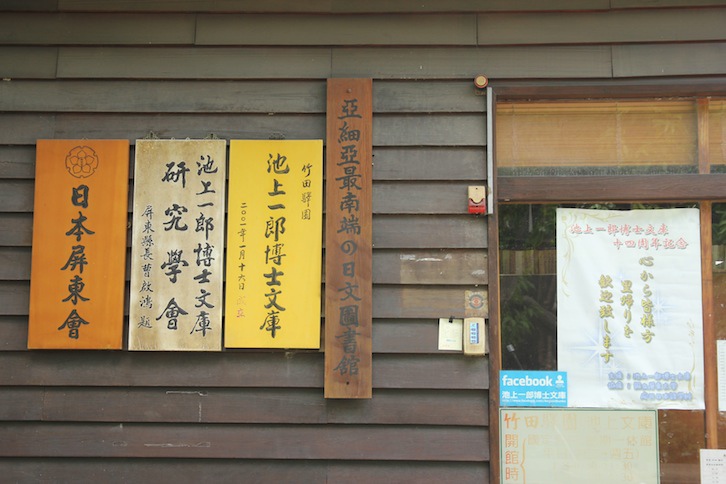 日本屏東會
池上一郎博士文庫
研究學會
屏東縣長曹啟鴻題
竹田驛園
池上一郎博士文庫
二〇〇一年一月十六日成立
亞細亞最南端の日文圖書館
池上一郎博士文庫
十四周年記念
心から皆様方
里帰りを
歓迎致します
facebook
池上一郎博士文庫
竹田
開館時